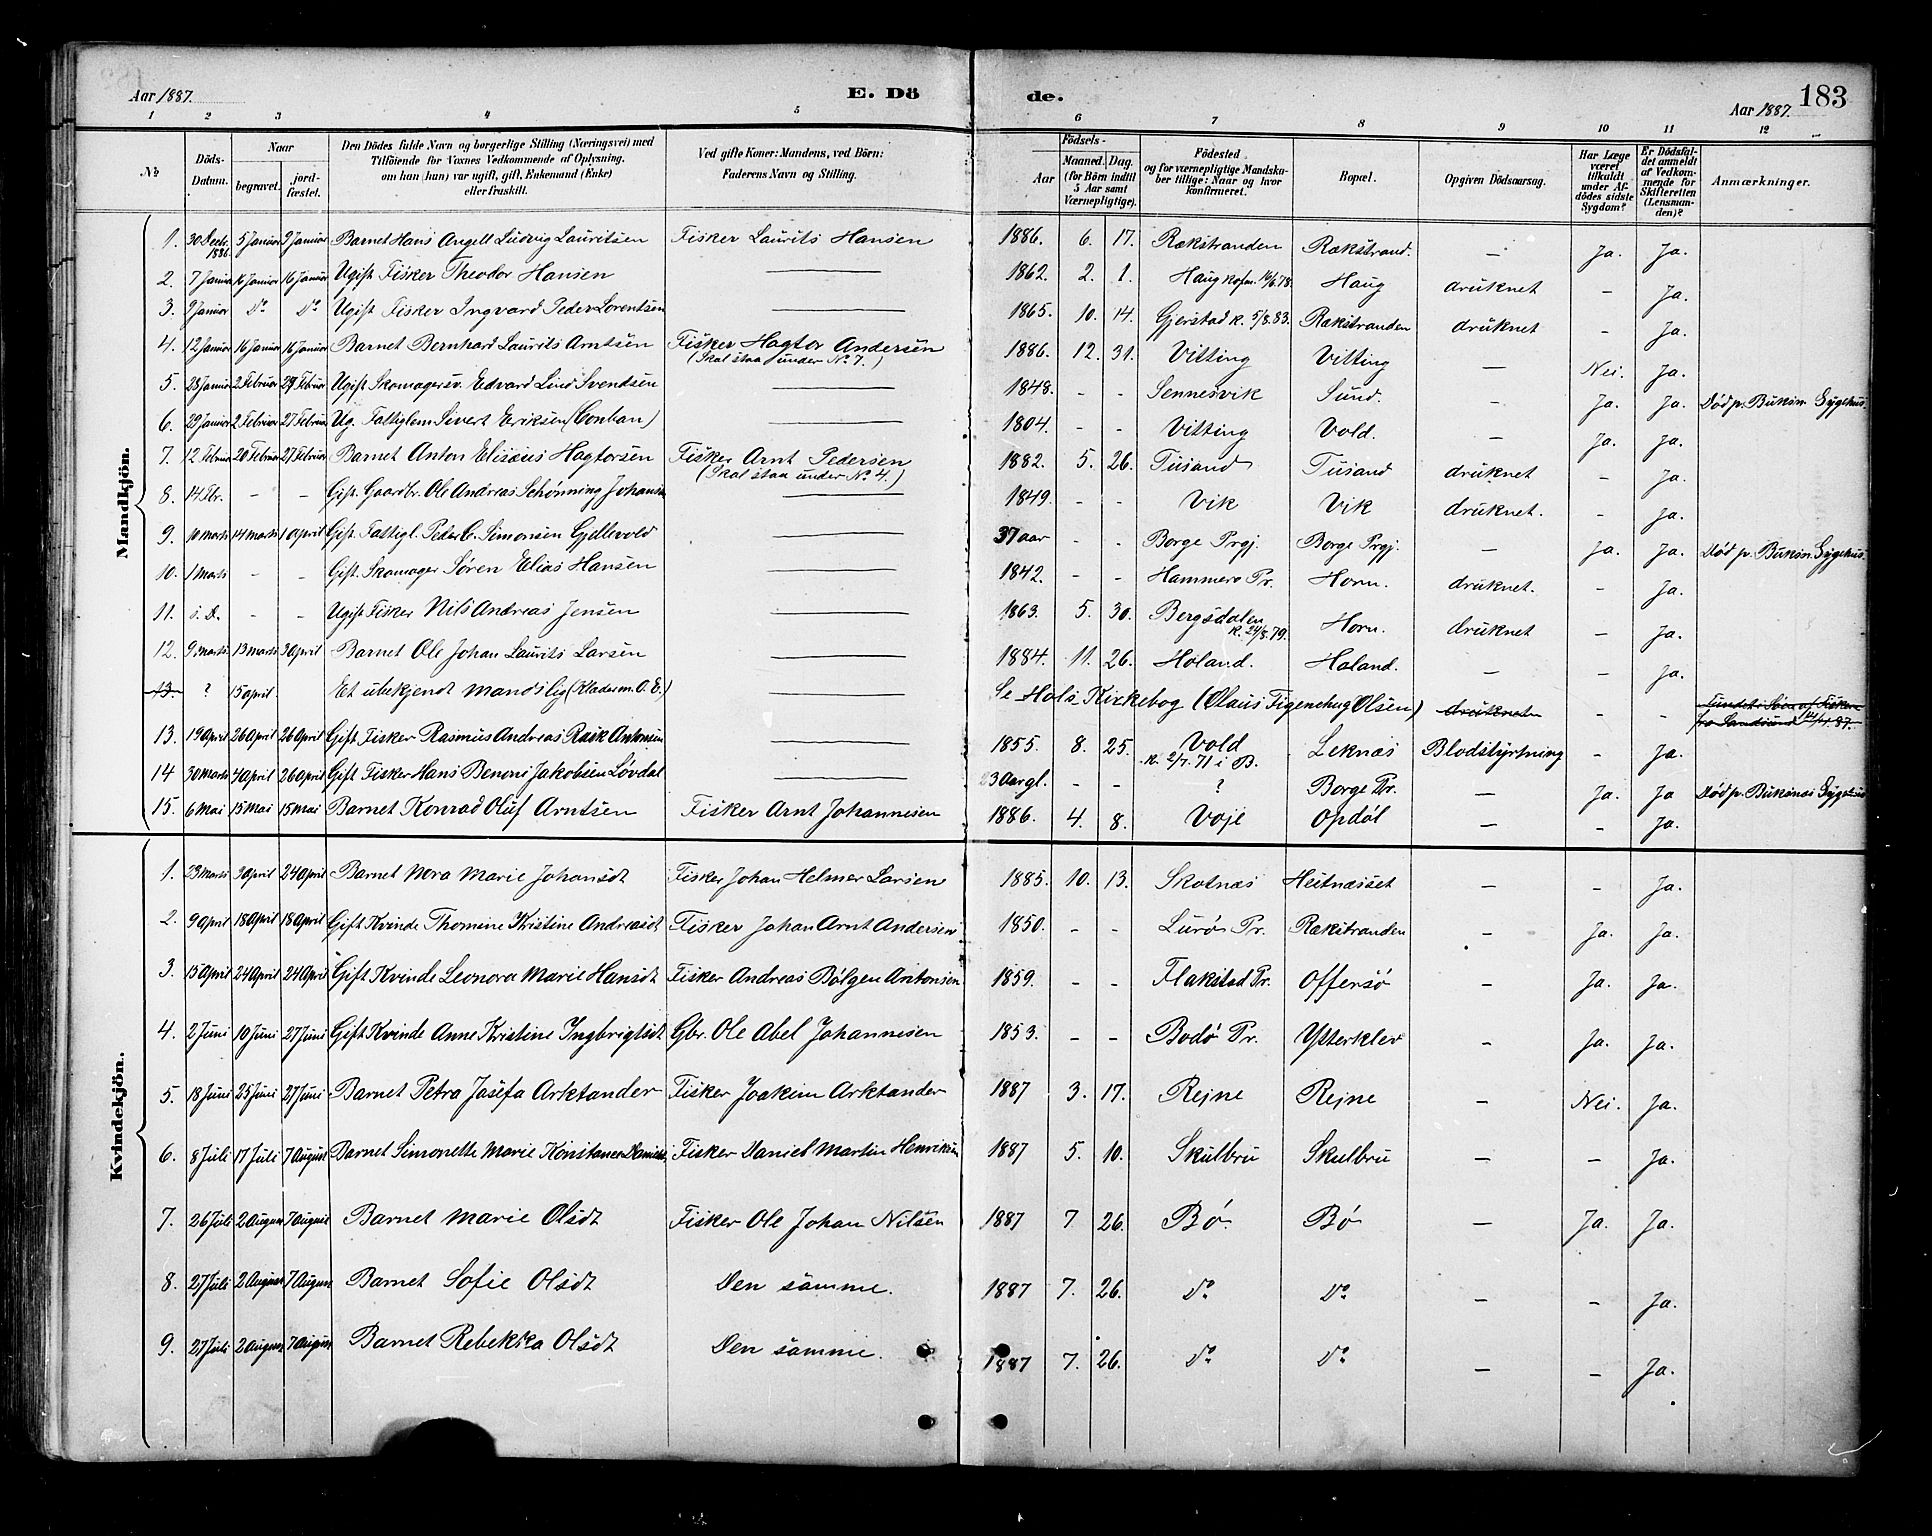 Aar 1887.
E. Dö
de.
Aar 1887.
183
1 2 3 4 5 6 7 8 9 10 11 12
No
Döds-Datum.
Naar
begravet.
jord-fæstet.
Den Dödes fulde Navn og borgerlige Stilling (Næringsvei) med
Tilföiende for Voxnes Vedkommende af Oplysning,
om han (hun) var ugift, gift, Enkemand (Enke)
eller fraskilt.
Ved gifte Koner: Mandens, ved Börn:
Faderens Navn og Stilling.
Födsels-
Aar
Maaned. Dag.
(for Börn indtil
5 Aar samt
Værnepligtige).
Födested
og for værnepligtige Mandska-
ber tillige: Naar og hvor
konfirmeret.
Bopæl.
Opgiven Dödsaarsag.
Har Læge
været
tilkaldt
under Af-
dödes sidste
Sygdom?
Er Dödsfal-
det anmeldt
af Vedkom-
mende for
Skifteretten
(Lensman-
den)?
Anmærkninger.
Mandkjön.
1. 30 Decbr. 1886. 5 Januar 9 Januar Barnet Hans Angell Ludvig Lauritsen Fisker Laurits Hansen 1886. 6. 17. Rækstranden Rækstrand. — Ja. Ja.
2. 7 Januar 16 Januar 16 Januar Ugift Fisker Theodor Hansen — 1862. 2. 1. Haug kofm. 16/6.78. Haug druknet — Ja.
3. 9 Januar Do Do Ugift Fisker Ingvard Peder Lorentsen — 1865. 10. 14. Gjerstad k. 5/8.83. Rækstranden druknet — Ja.
4. 12 Januar 16 Januar 16 Januar Barnet Bernhard Laurits Arntsen Fisker Hagtor Andersen (Skal staa under No 7.) 1886. 12. 31. Vitting Vitting — Nei. Ja.
5. 28 Januar 2 Februar 27 Februar Ugift Skomagersv. Edvard Lind Svendsen — 1848. - - Sennesvik Sund. — Ja. Ja. Död p. Buksn. Sygehus.
6. 29 Januar 2 Februar 27 Februar Ug. Fattiglem Sivert Eriksen (Conhan) — 1804. - - Vitting Vold. — Ja. Ja.
7. 12 Februar 20 Februar 27 Februar Barnet Anton Elisæus Hagtorsen Fisker Arnt Pedersen (Skal staa under No 4.) 1882. 5. 26. Tusand Tusand druknet — Ja.
8. 14 Fbr. - - Gift. Gaardbr. Ole Andreas Schønning Johansen — 1849. - - Vik Vik druknet. — Ja.
9. 10 marts 14 marts 10 April Gift. Fattigl. Peder C. Simonsen Gjellevold — 37 aar - - Borge Prgj. Borge Prgj. — Ja. Ja. Död p. Buksn. Sygehus.
10. 1 Marts - - Gift. Skomager Søren Elias Hansen — 1842. - - Hammerø Pr. Horn. druknet. — Ja.
11. s. D. - - Ugift Fisker Nils Andreas Jensen — 1863. 5. 30. Bergsdalen k. 24/8.79. Horn. druknet — Ja.
12. 9 marts 13 marts 3 April Barnet Ole Johan Laurits Larsen — 1884. 11. 26. Holand. Holand. — — Ja.
13. ? 15 April Et ubekjendt mandslig (Klæder m. O. E.) — Se Hols Kirkebog (Olaus Figenchug Olsen) druknet — —
13. 19 April 26 April 26 April Gift. Fisker Rasmus Andreas Rask Antonsen — 1855. 8. 25. Vold k. 2/7. 71 i B. Leknæs Blodstyrtning — Ja.
14 30 Marts 4 April 26 April Gift Fisker Hans Benoni Jakobsen Løvdal — 23 Aar gl. - - ? Borge Pr. — Ja. Ja Död p. Buksnæs Sygehus
15. 6 Mai 15 Mai 15 Mai Barnet Konrad Oluf Arntsen Fisker Arnt Johannesen 1886. 4. 8. Voje Opdøl — — Ja.
Kvindekjön.
1. 23 Marts 3 April 24 April Barnet Nora Marie Johansdt Fisker Johan Helmer Larsen 1885. 10. 13. Skotnæs Heitnæsset — — Ja.
2. 9 April 18 April 18 April Gift Kvinde Thomine Kristine Andreasdt Fisker Johan Arnt Andersen 1850. - - Lurø Pr. Rækstranden — Ja. Ja.
3. 15 April 24 April 24 April Gift Kvinde Leonora Marie Hansdt Fisker Andreas Bølgen Antonsen 1859. - - Flakstad Pr. Offersø — Ja. Ja.
4. 2 Juni 10 Juni 27 Juni Gift Kvinde Anne Kristine Ingbrigtsdt Gbr. Ole Abel Johannesen 1853. - - Bodø Pr. Ytterklev — Ja. Ja.
5. 18 Juni 25 Juni 27 Juni Barnet Petra Josefa Arktander Fisker Joakim Arktander 1887 3. 17. Rejne Rejne — Nei. Ja.
6. 8 Juli 17 Juli 7 August Barnet Simonette Marie Konstance Daniels. Fisker Daniel Martin Henriksen 1887 5. 10. Skulbru Skulbru — — Ja.
7. 26 Juli 2 August 7 August Barnet Marie Olsdt Fisker Ole Johan Nilsen 1887 7 26. Bø Bø — Ja. Ja.
8. 27 Juli 2 August 7 August Barnet Sofie Olsdt Den samme. 1887 7. 26. Do Do — — Ja.
9. 27 Juli 2 August 7 August Barnet Rebekka Olsdt Den samme. 1887 7. 26. Do Do — — Ja.